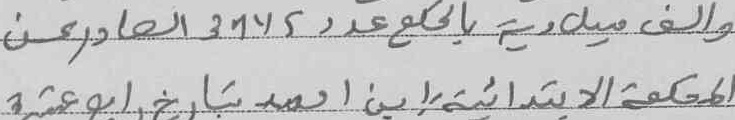 والف ميلادية بالحكم عدد الصادر عن
المحكمة الابتدائية بتاريخ اربو عشرة